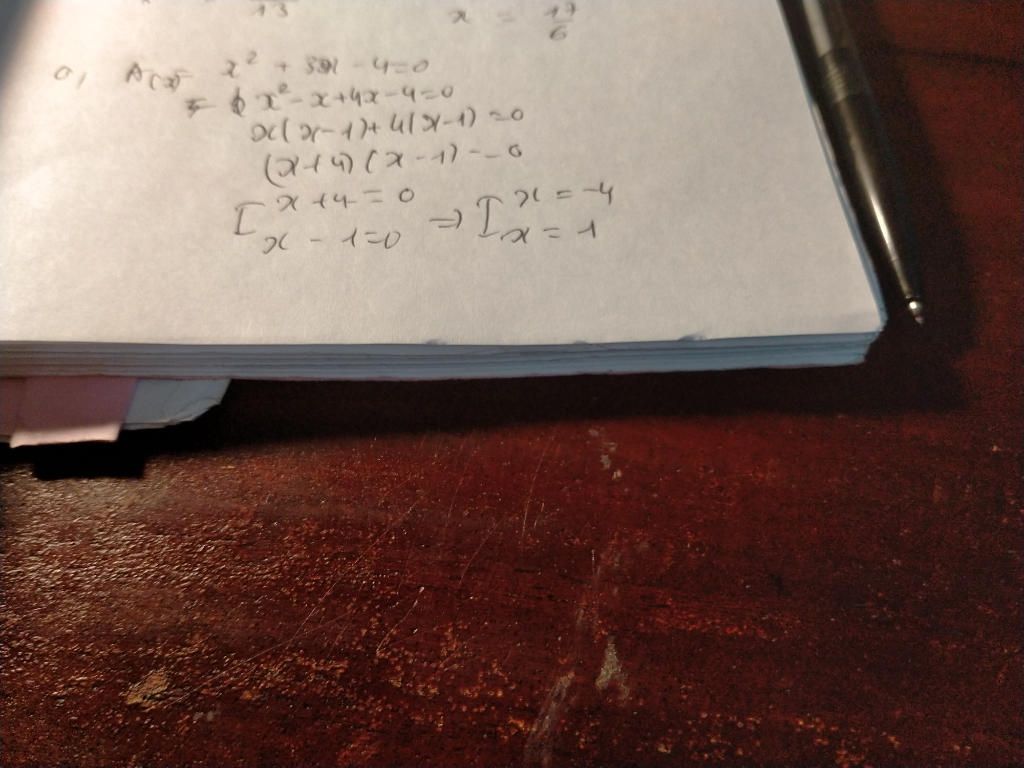 13 x = 17/6
a, A(x) = x² + 3x - 4=0
= x² - x+4x-4=0
x(x-1)+4(x-1) =0
(x+4)(x-1) = 0
[ x+4=0 => [ x = -4
x - 1=0 x = 1